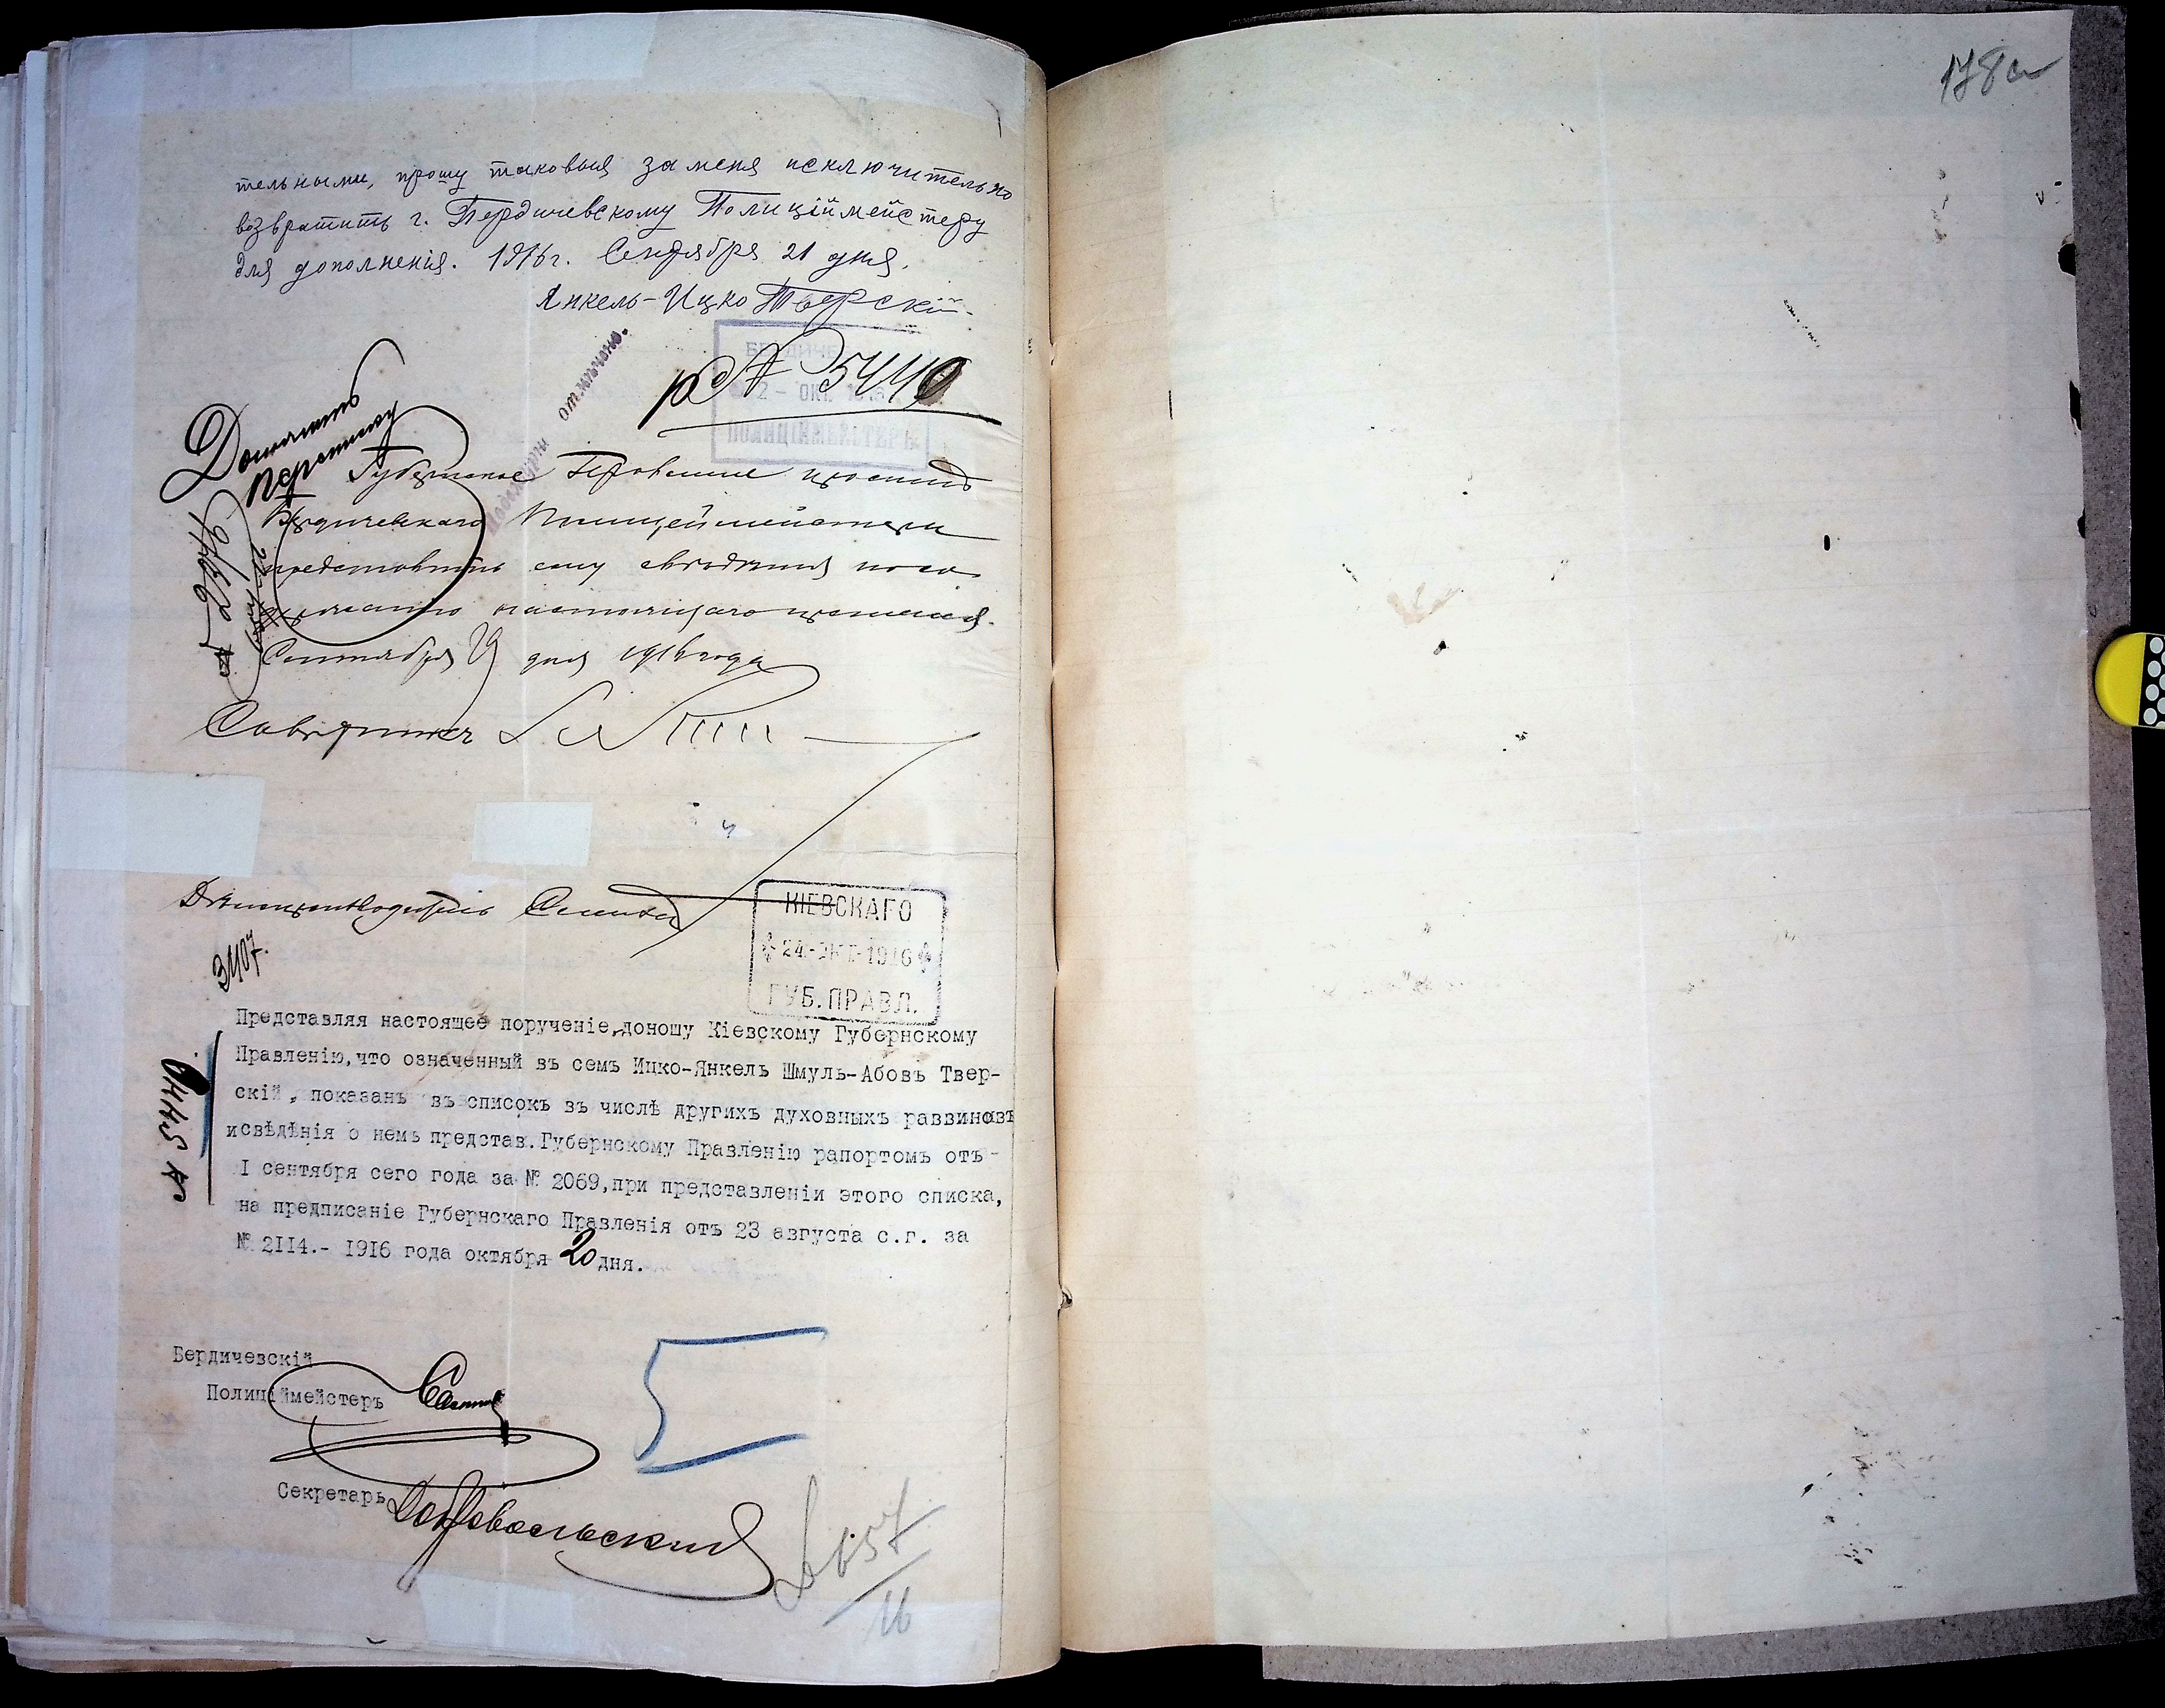 178а
тельными, прошу таковыя за меня исключительно
возвратить г. Бердичевскому Полиціймейстеру
для дополненія. 1916 г. Сентября 21 дня.
Янкель-Ицко Тверскій.
отлючено.
БЕРДИЧЕВ
2 - ОКТ. 1916
ПОЛИЦІЙМЕЙСТЕРЪ
№ 5440
Дополнить
переписку
Губернское Правленіе проситъ
Бердичевскаго Полицеймейстера
представить сему свѣдѣнія по со-
держанію настоящаго прошенія.
Сентября 29 дня 1916 года
Совѣтникъ
Дѣлопроизводитель
КІЕВСКАГО
24-ОКТ-1916
ГУБ.ПРАВЛ.
3407.
Представляя настоящее порученіе, доношу Кіевскому Губернскому
Правленію, что означенный въ семъ Ицко-Янкель Шмуль-Абовъ Твер-
скій, показанъ въ списокъ въ числѣ другихъ духовныхъ раввиновъ
исвѣдѣнія о немъ представ. Губернскому Правленію рапортомъ отъ-
I сентября сего года за № 2069, при представленіи этого списка,
на предписаніе Губернскаго Правленія отъ 23 августа с.г. за
№ 2II4.- I9I6 года октября 20 дня.
№ 5440
Бердичевскій
Полиціймейстеръ
Секретарь